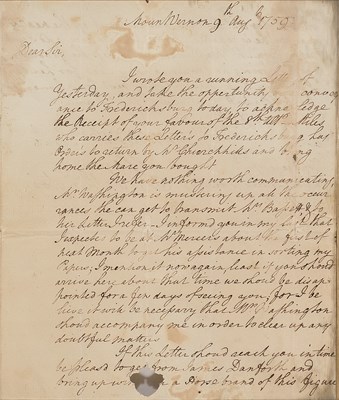 Mount Vernon 9th Augt 1759
Dear Sir,
I wrote you a running
Yesterday, and take the opportunity
ance to Fredericksburg to day, to acknowledge
the Receipt of your favour of the 8th
who carries these Letters to Fredericksburg has
Orders to return by Mr and bring
home the Mare you bought
We have nothing worth communicating,
Mrs Washington is mustering up all the occur
ances she can get to transmit Mrs Bassett & to
her better I refer. I inform'd you in my that
I expected to be at Mr Mercer's about the first of
next Month to get his assistance in sorting my
Papers; I mention it now again, least if you should
arrive here about that time we should be disap-
pointed for a few days of seeing you; for I be
lieve it will be necessary that Mrs Washington
should accompany me in order to clear up any
doubtful matters
If this Letter shoud reach you in time
be pleasd to get from James Danforth and
bring up with a Horse brand of this figure